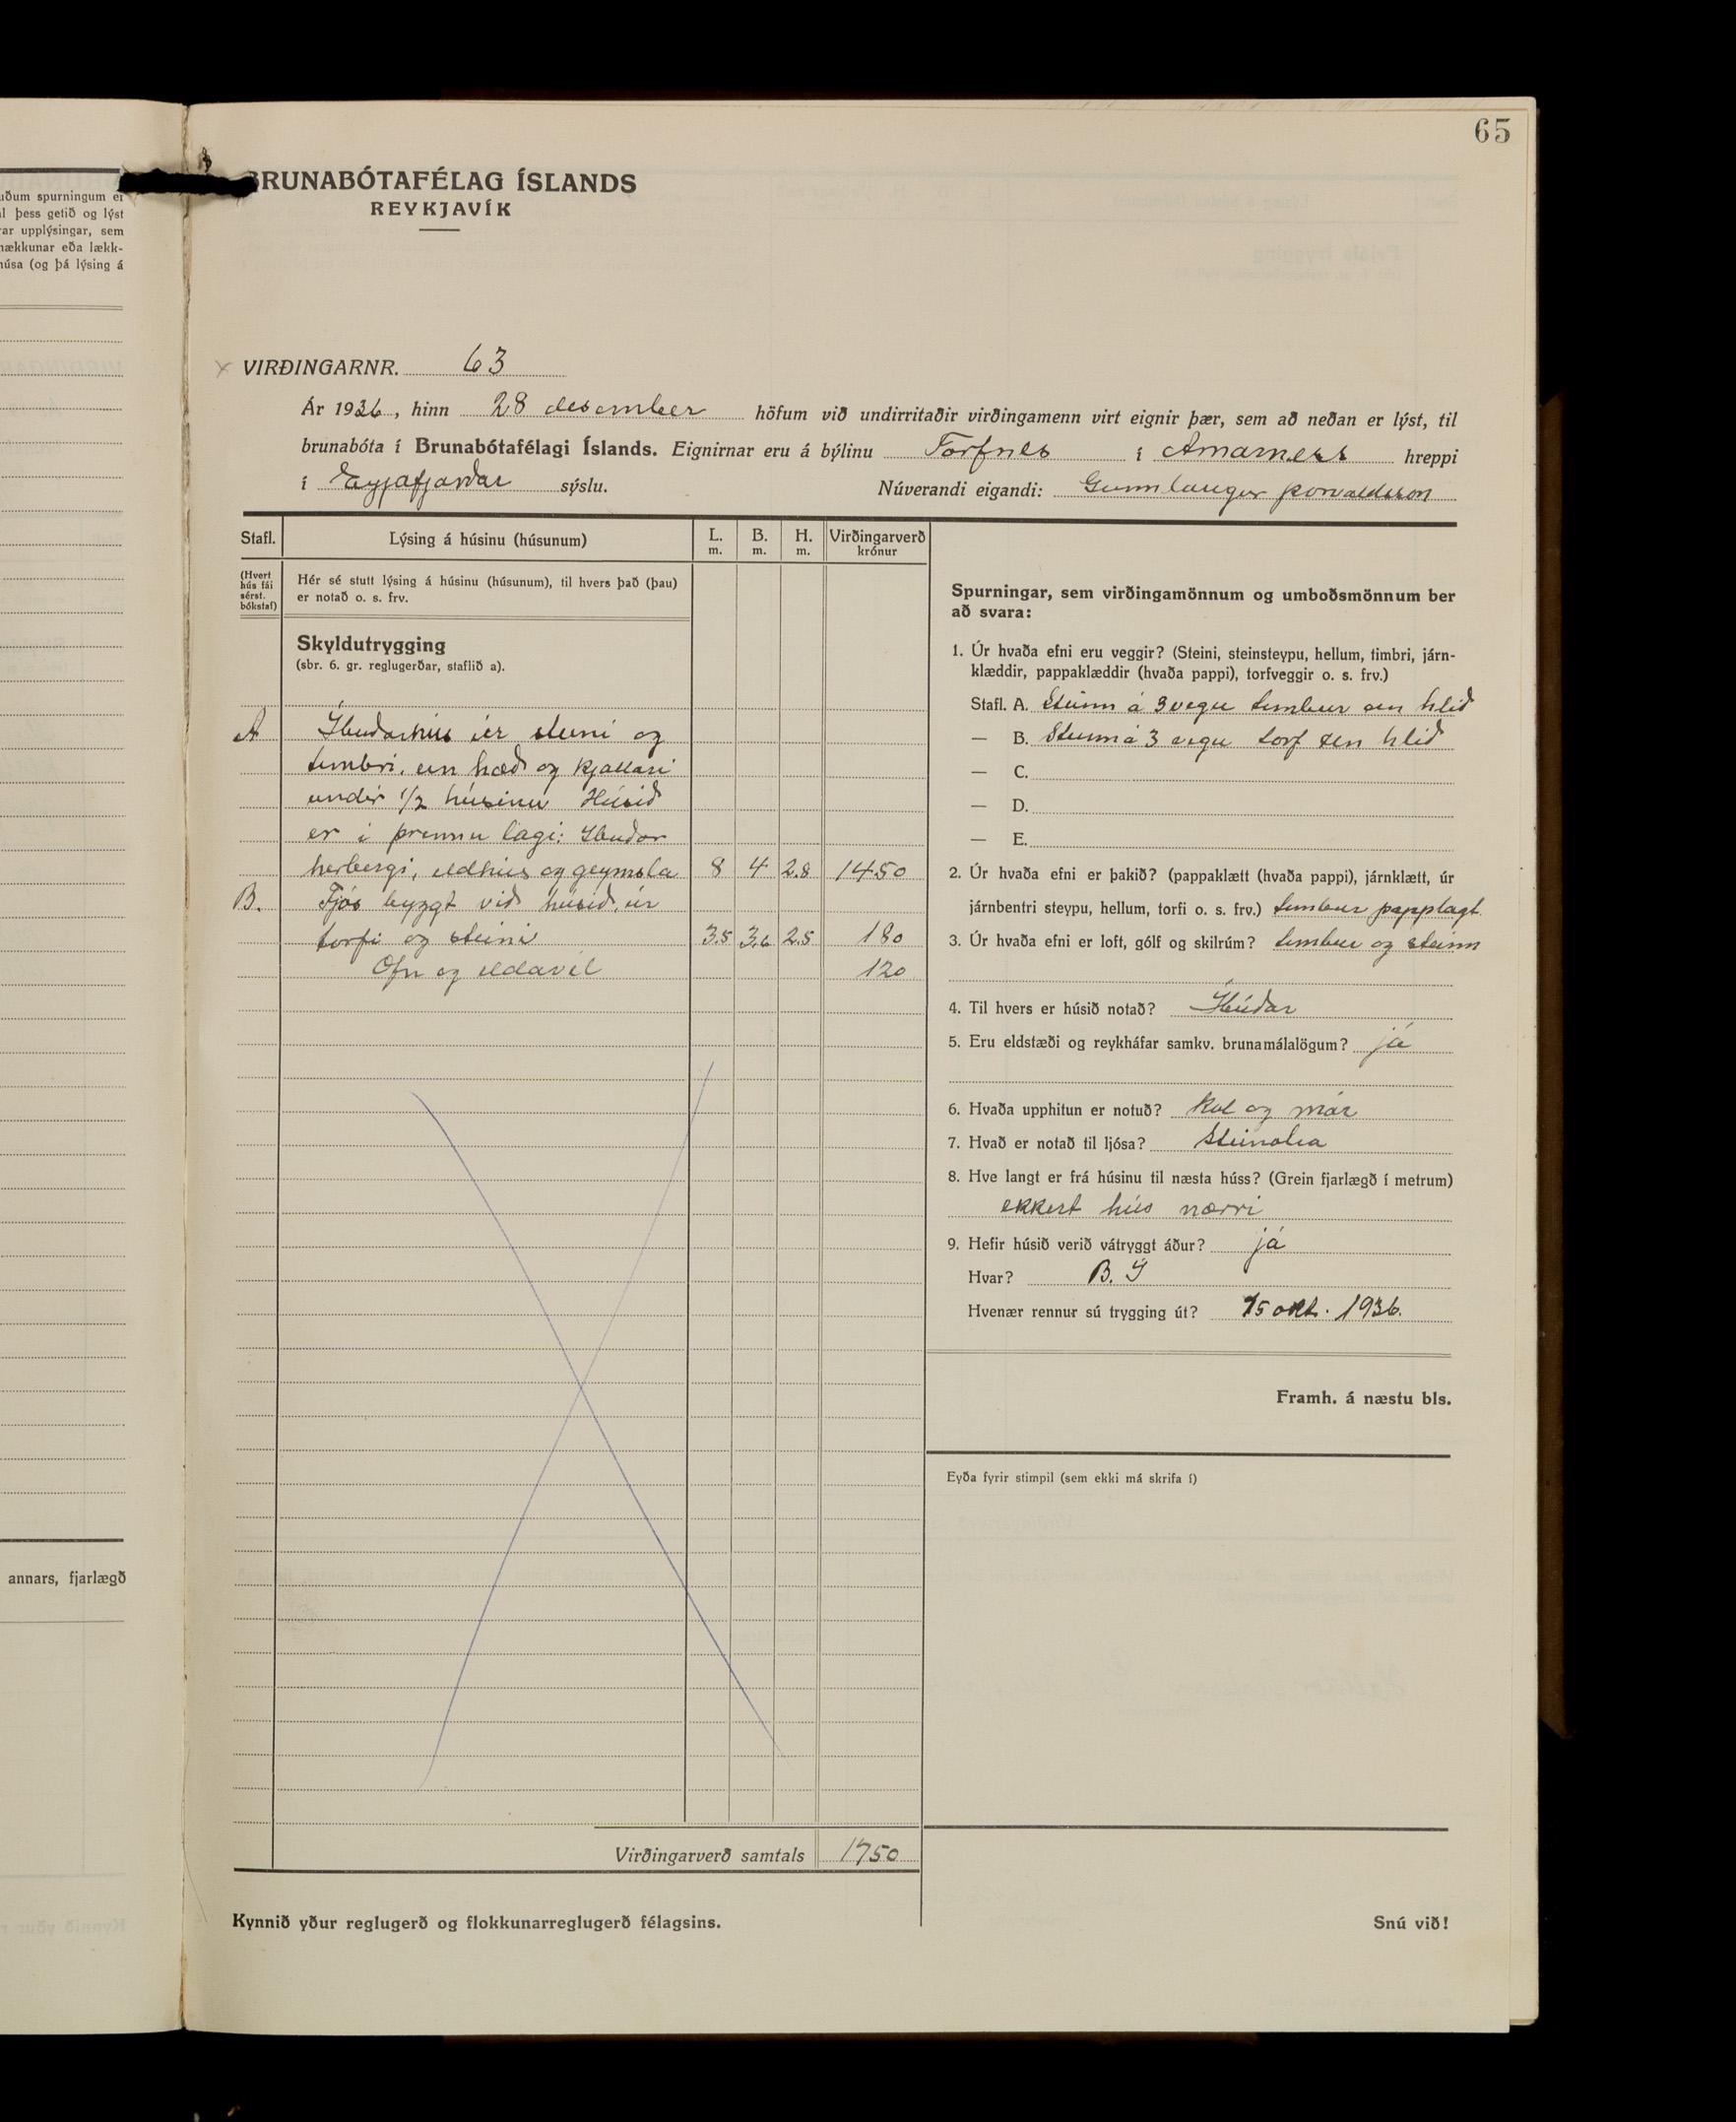 65
uðum spurningum er
þess getið og lýst
rar upplýsingar, sem
hækkunar eða lækk-
húsa (og þá lýsing á
annars, fjarlægð
BRUNABÓTAFÉLAG ÍSLANDS
REYKJAVÍK
VIRÐINGARNR. 63
Ár 1936, hinn 28 desember höfum við undirritaðir virðingamenn virt eignir þær, sem að neðan er lýst, til
brunabóta í Brunabótafélagi Íslands. Eignirnar eru á býlinu Torfnes í Arnarness hreppi
í Eyjafjarðar sýslu. Núverandi eigandi: Gunnlaugur Þorvaldsson
Stafl. Lýsing á húsinu (húsunum) L. m. B. m. H. m. Virðingarverð krónur
(Hvert hús fái sérst. bókstaf)
Hér sé stutt lýsing á húsinu (húsunum), til hvers það (þau)
er notað o. s. frv.
Skyldutrygging
(sbr. 6. gr. reglugerðar, staflið a).
A Íbúðarhús úr steini og
timbri, ein hæð og kjallari
undir 1/2 húsinu Húsið
er í þrennu lagi: Íbúðar
herbergi, eldhús og geymsla 8 4 2.8 1450
B. Fjós byggt við húsið, úr
torfi og steini 3.5 3.6 2.5 180
Ofn og eldavél 120
Virðingarverð samtals 1750
Kynnið yður reglugerð og flokkunarreglugerð félagsins.
Spurningar, sem virðingamönnum og umboðsmönnum ber
að svara:
1. Úr hvaða efni eru veggir? (Steini, steinsteypu, hellum, timbri, járn-
klæddir, pappaklæddir (hvaða pappi), torfveggir o. s. frv.)
Stafl. A. Steinn á 3 vegu timbur ein hlið
— B. Steinn á 3 vegu torf ein hlið
— C.
— D.
— E.
2. Úr hvaða efni er þakið? (pappaklætt (hvaða pappi), járnklætt, úr
járnbentri steypu, hellum, torfi o. s. frv.) timbur papplagt
3. Úr hvaða efni er loft, gólf og skilrúm? timbur og steinn
4. Til hvers er húsið notað? Íbúðar
5. Eru eldstæði og reykháfar samkv. brunamálalögum? já
6. Hvaða upphitun er notuð? Kol og mór
7. Hvað er notað til ljósa? Steinolia
8. Hve langt er frá húsinu til næsta húss? (Grein fjarlægð í metrum)
ekkert hús nærri
9. Hefir húsið verið vátryggt áður? já
Hvar? B. Í
Hvenær rennur sú trygging út? 15 okt. 1936.
Framh. á næstu bls.
Eyða fyrir stimpil (sem ekki má skrifa í)
Snú við!